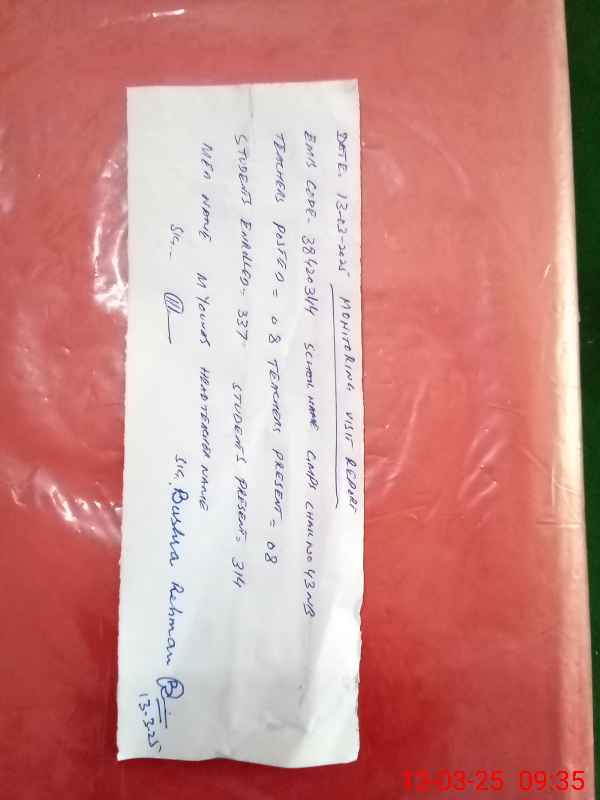 DATE. 13-03-2025 MONITORING VISIT REPORT
EMIS CODE- 38420344 SCHOOL NAME GMPS CHAK NO 43 NB
TEACHERS POSTED = 08 TEACHERS PRESENT = 08
STUDENTS ENROLLED= 337- STUDENTS PRESENT= 314
MEA NAME M YOUNAS HEAD TEACHER NAME
SIG.- SIG. Bushra Rehman
13.3.25
13-03-25 09:35